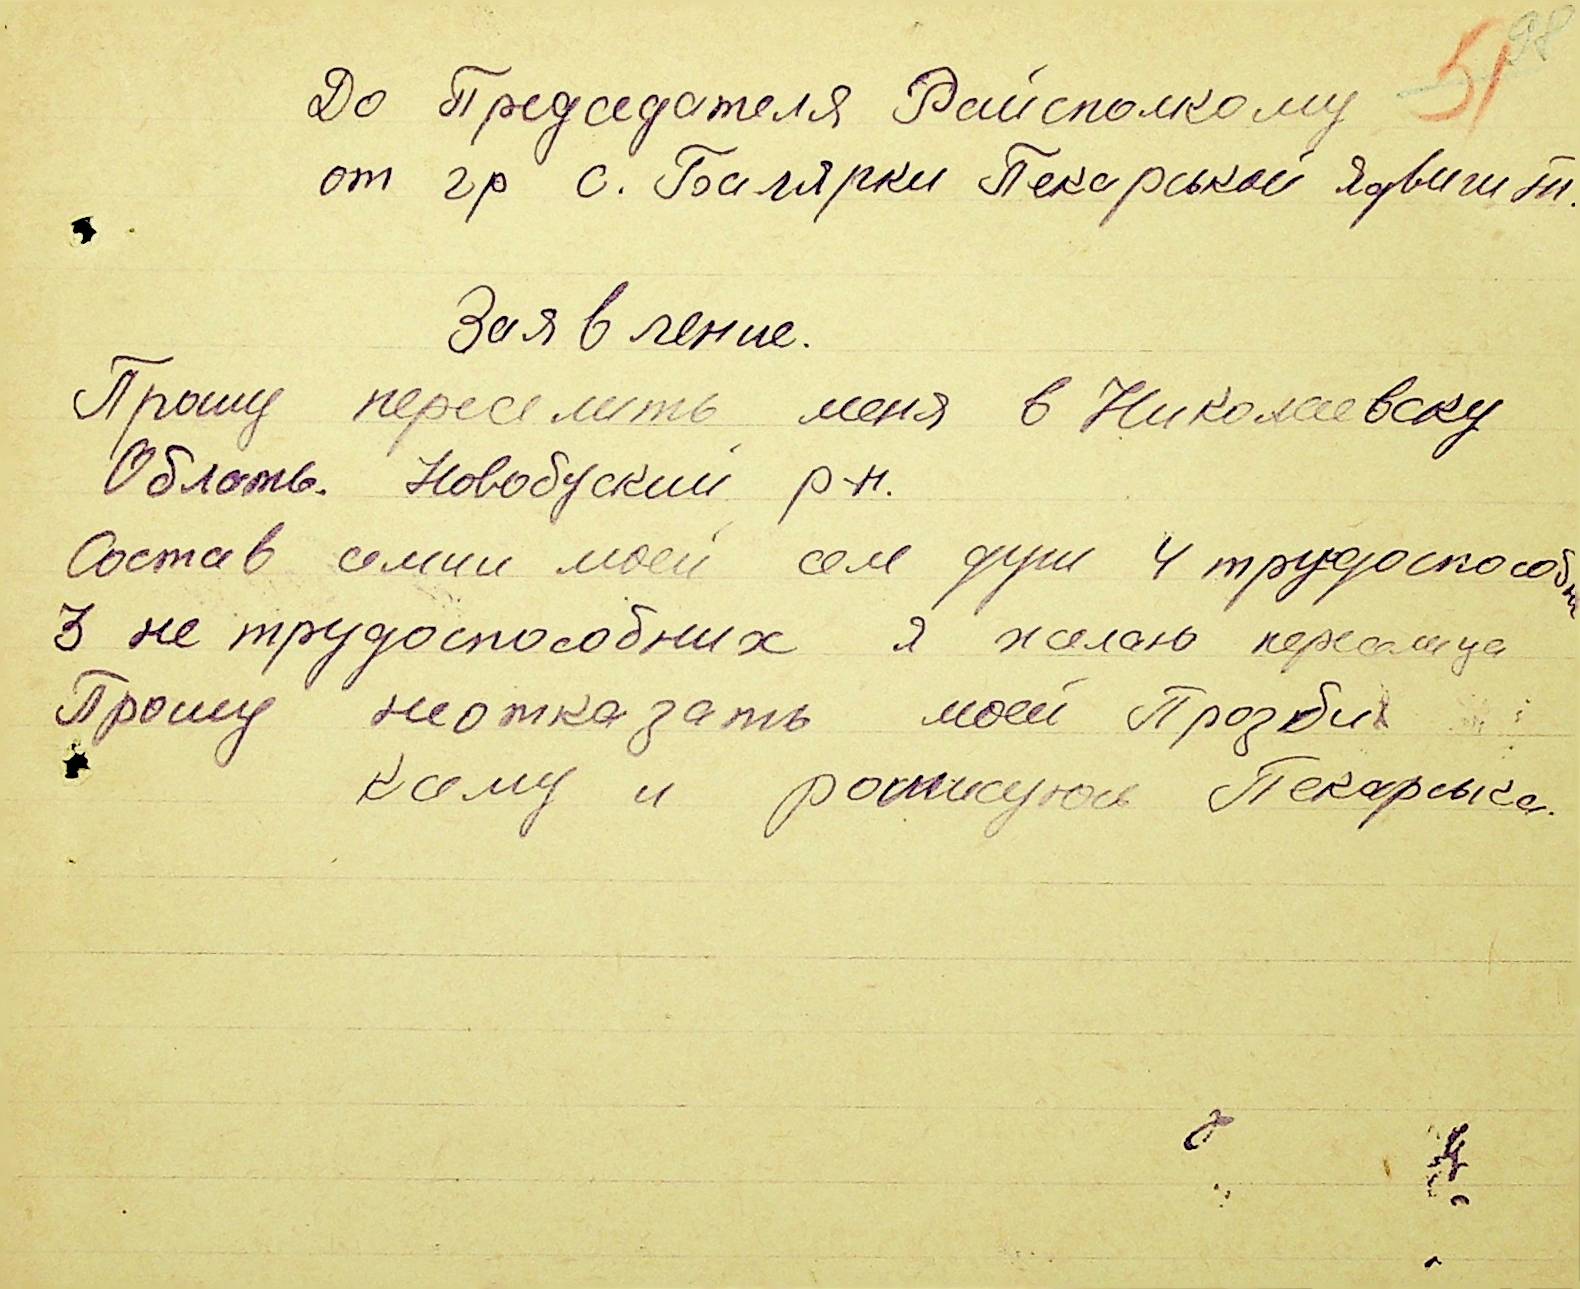 51 98
До Председателя Райсполкому
от гр с. Балярки Пекарськой Ядвиги Т.
Заявление.
Прошу переселить меня в Николаевску
Облать. Новобуский р-н.
Состав семии моей сем душ 4 трудоспособни
3 не трудоспособних я желаю переселица
Прошу неотказать моей Прозби
к сему и росписуюсь Пекарська.